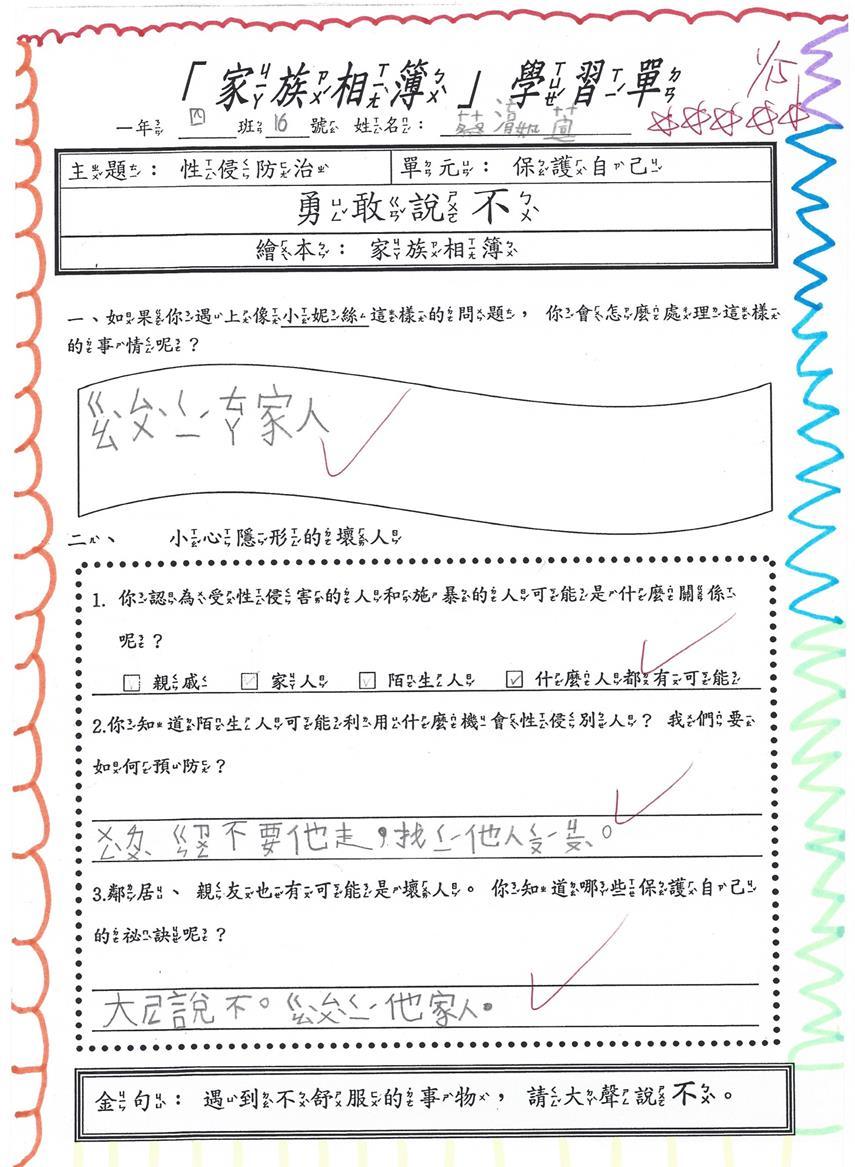 「家族相簿」學習單
1/15
一年 四 班 16 號 姓名：蔡 宜
主題：性侵防治 單元：保護自己
勇敢說不
繪本：家族相簿
一、如果你遇上像小妮絲這樣的問題， 你會怎麼處理這樣
的事情呢？
ㄍㄠˋ ㄙㄨˋ ㄑㄧˊ ㄊㄚ 家人
二、 小心隱形的壞人
1. 你認為受性侵害的人和施暴的人可能是什麼關係
呢？
親戚 家人 陌生人 ✓什麼人都有可能
2.你知道陌生人可能利用什麼機會性侵別人？ 我們要
如何預防？
不要他走，找ㄑㄧˊ他人
3.鄰居、 親友也有可能是壞人。 你知道哪些保護自己
的祕訣呢？
大 說不。ㄍㄠˋㄙㄨˋㄑㄧˊ他家人。
金句： 遇到不舒服的事物， 請大聲說不。